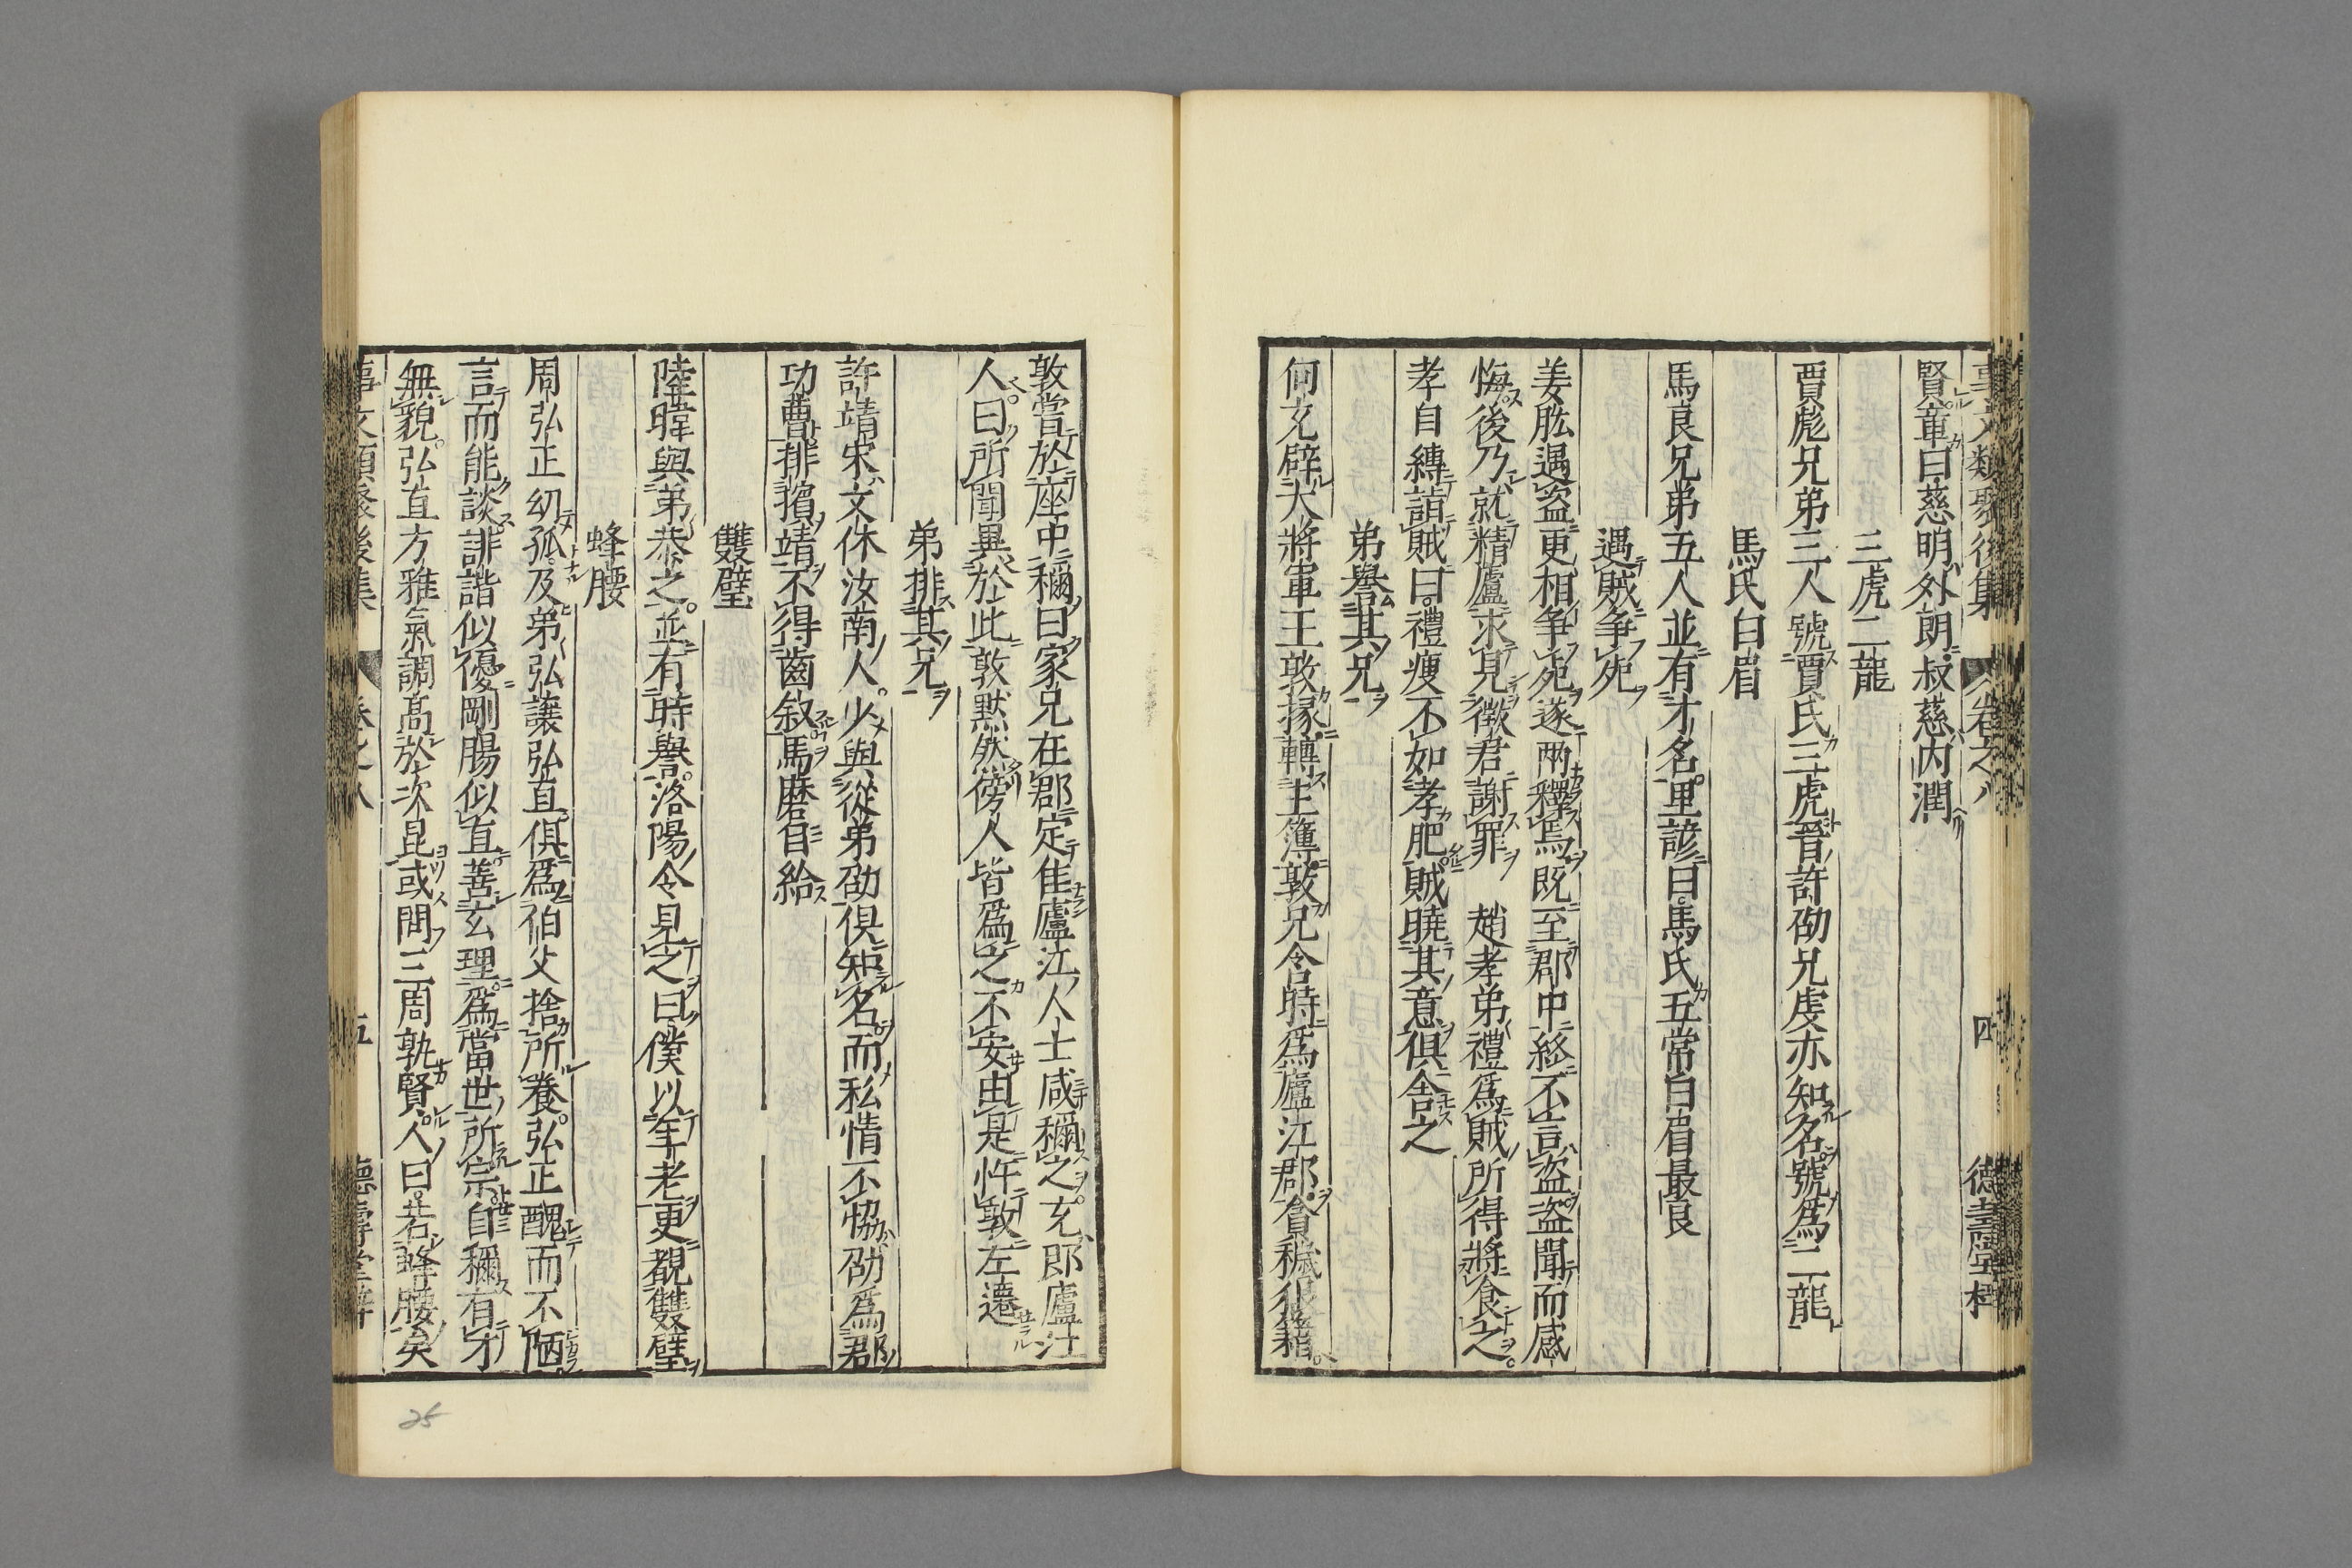 事文類聚後集 卷之八 四 德壽堂梓
賢章曰慈明外朗叔慈內潤
三虎二龍
賈彪兄弟三人號賈氏三虎晉許劭兄虔亦知名號爲二龍
馬氏白眉
馬良兄弟五人並有才名里諺曰馬氏五常白眉最良
遇賊爭死
姜肱遇盜更相爭死遂兩釋焉旣至郡中終不言盜盜聞而感
悔後乃就精廬求見徵君謝罪 趙孝弟禮爲賊所得將食之
孝自縛詣賊曰禮瘦不如孝肥賊曉其意俱舍之
弟譽其兄
何充辟大將軍王敦掾轉主簿敦兄含時爲廬江郡貪穢狼藉
敦嘗於座中稱曰家兄在郡定佳廬江人士咸稱之充郎廬江
人曰所聞異於此敦黙然傍人皆爲之不安由是忤敦左遷
弟排其兄
許靖宋文休汝南人少與從弟劭俱知名而私情不恊劭爲郡
功曹排擯靖不得齒叙馬磨自給
雙璧
陸暐與弟恭之並有時譽洛陽令見之曰僕以年老更覩雙璧
蜂腰
周弘正幼孤及弟弘讓弘直俱爲伯父捨所養弘正醜而不陋
言而能談誹諧似優剛腸似直善玄理爲當世所宗自稱有才
無貌弘直方雅氣調高於次昆或問三周孰賢人曰若蜂腰矣
事文類聚後集 卷之八 五 德壽堂梓
25